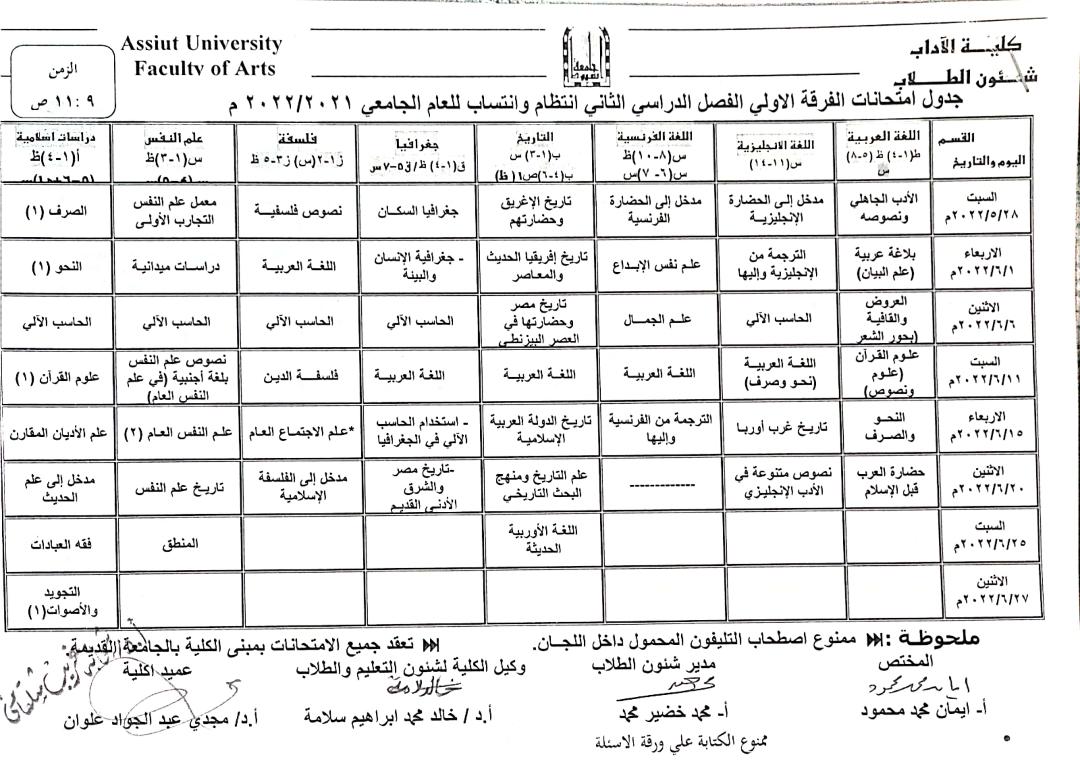 Assiut University
Faculty of Arts
كلية الآداب
شئون الطلاب
الزمن
٩ : ١١ ص
جدول امتحانات الفرقة الاولي الفصل الدراسي الثاني انتظام وانتساب للعام الجامعي ٢٠٢٢/٢٠٢١ م
القسم
اليوم والتاريخ
اللغة العربية
ط(١-٤) ظ (٥-٨)
س
اللغة الانجليزية
س(١١-١٤)
اللغة الفرنسية
س(٨-١٠)ظ
س(٦-٧)س
التاريخ
ب(١-٣) س
ب(٤-٦)ص١( ظ)
جغرافيا
ق(١-٤) ظ/ق٥-٧ س
فلسفة
ز١-٢(س) ز٣-٥ ظ
علم النفس
س(١-٣)ظ
دراسات اسلامية
أ(١-٤)ظ
السبت
٢٠٢٢/٥/٢٨م
الأدب الجاهلي
ونصوصه
مدخل إلى الحضارة
الإنجليزية
مدخل إلى الحضارة
الفرنسية
تاريخ الإغريق
وحضارتهم
جغرافيا السكان
نصوص فلسفية
معمل علم النفس
التجارب الأولى
الصرف (١)
الاربعاء
٢٠٢٢/٦/١م
بلاغة عربية
(علم البيان)
الترجمة من
الإنجليزية وإليها
علم نفس الإبداع
تاريخ إفريقيا الحديث
والمعاصر
- جغرافية الإنسان
والبيئة
اللغة العربية
دراسات ميدانية
النحو (١)
الاثنين
٢٠٢٢/٦/٦م
العروض
والقافية
(بحور الشعر
الحاسب الآلي
علم الجمال
تاريخ مصر
وحضارتها في
العصر البيزنطي
الحاسب الآلي
الحاسب الآلي
الحاسب الآلي
الحاسب الآلي
السبت
٢٠٢٢/٦/١١م
علوم القرآن
(علوم
ونصوص)
اللغة العربية
(نحو وصرف)
اللغة العربية
اللغة العربية
اللغة العربية
فلسفة الدين
نصوص علم النفس
بلغة أجنبية (في علم
النفس العام)
علوم القرآن (١)
الاربعاء
٢٠٢٢/٦/١٥م
النحو
والصرف
تاريخ غرب أوربا
الترجمة من الفرنسية
وإليها
تاريخ الدولة العربية
الإسلامية
- استخدام الحاسب
الآلي في الجغرافيا
*علم الاجتماع العام
علم النفس العام (٢)
علم الأديان المقارن
الاثنين
٢٠٢٢/٦/٢٠م
حضارة العرب
قبل الإسلام
نصوص متنوعة في
الأدب الإنجليزي
-------------
علم التاريخ ومنهج
البحث التاريخي
-تاريخ مصر
والشرق
الأدنى القديم
مدخل إلى الفلسفة
الإسلامية
تاريخ علم النفس
مدخل إلى علم
الحديث
السبت
٢٠٢٢/٦/٢٥م
اللغة الأوربية
الحديثة
المنطق
فقه العبادات
الاثنين
٢٠٢٢/٦/٢٧م
التجويد
والأصوات(١)
ملحوظة : ممنوع اصطحاب التليفون المحمول داخل اللجان. تعقد جميع الامتحانات بمبنى الكلية بالجامعة القديمة
المختص
مدير شئون الطلاب
وكيل الكلية لشئون التعليم والطلاب
عميد اكلية
أ- ايمان محمد محمود
أ- محمد خضير محمد
أ.د / خالد محمد ابراهيم سلامة
أ.د/ مجدي عبد الجواد علوان
ممنوع الكتابة علي ورقة الاسئلة